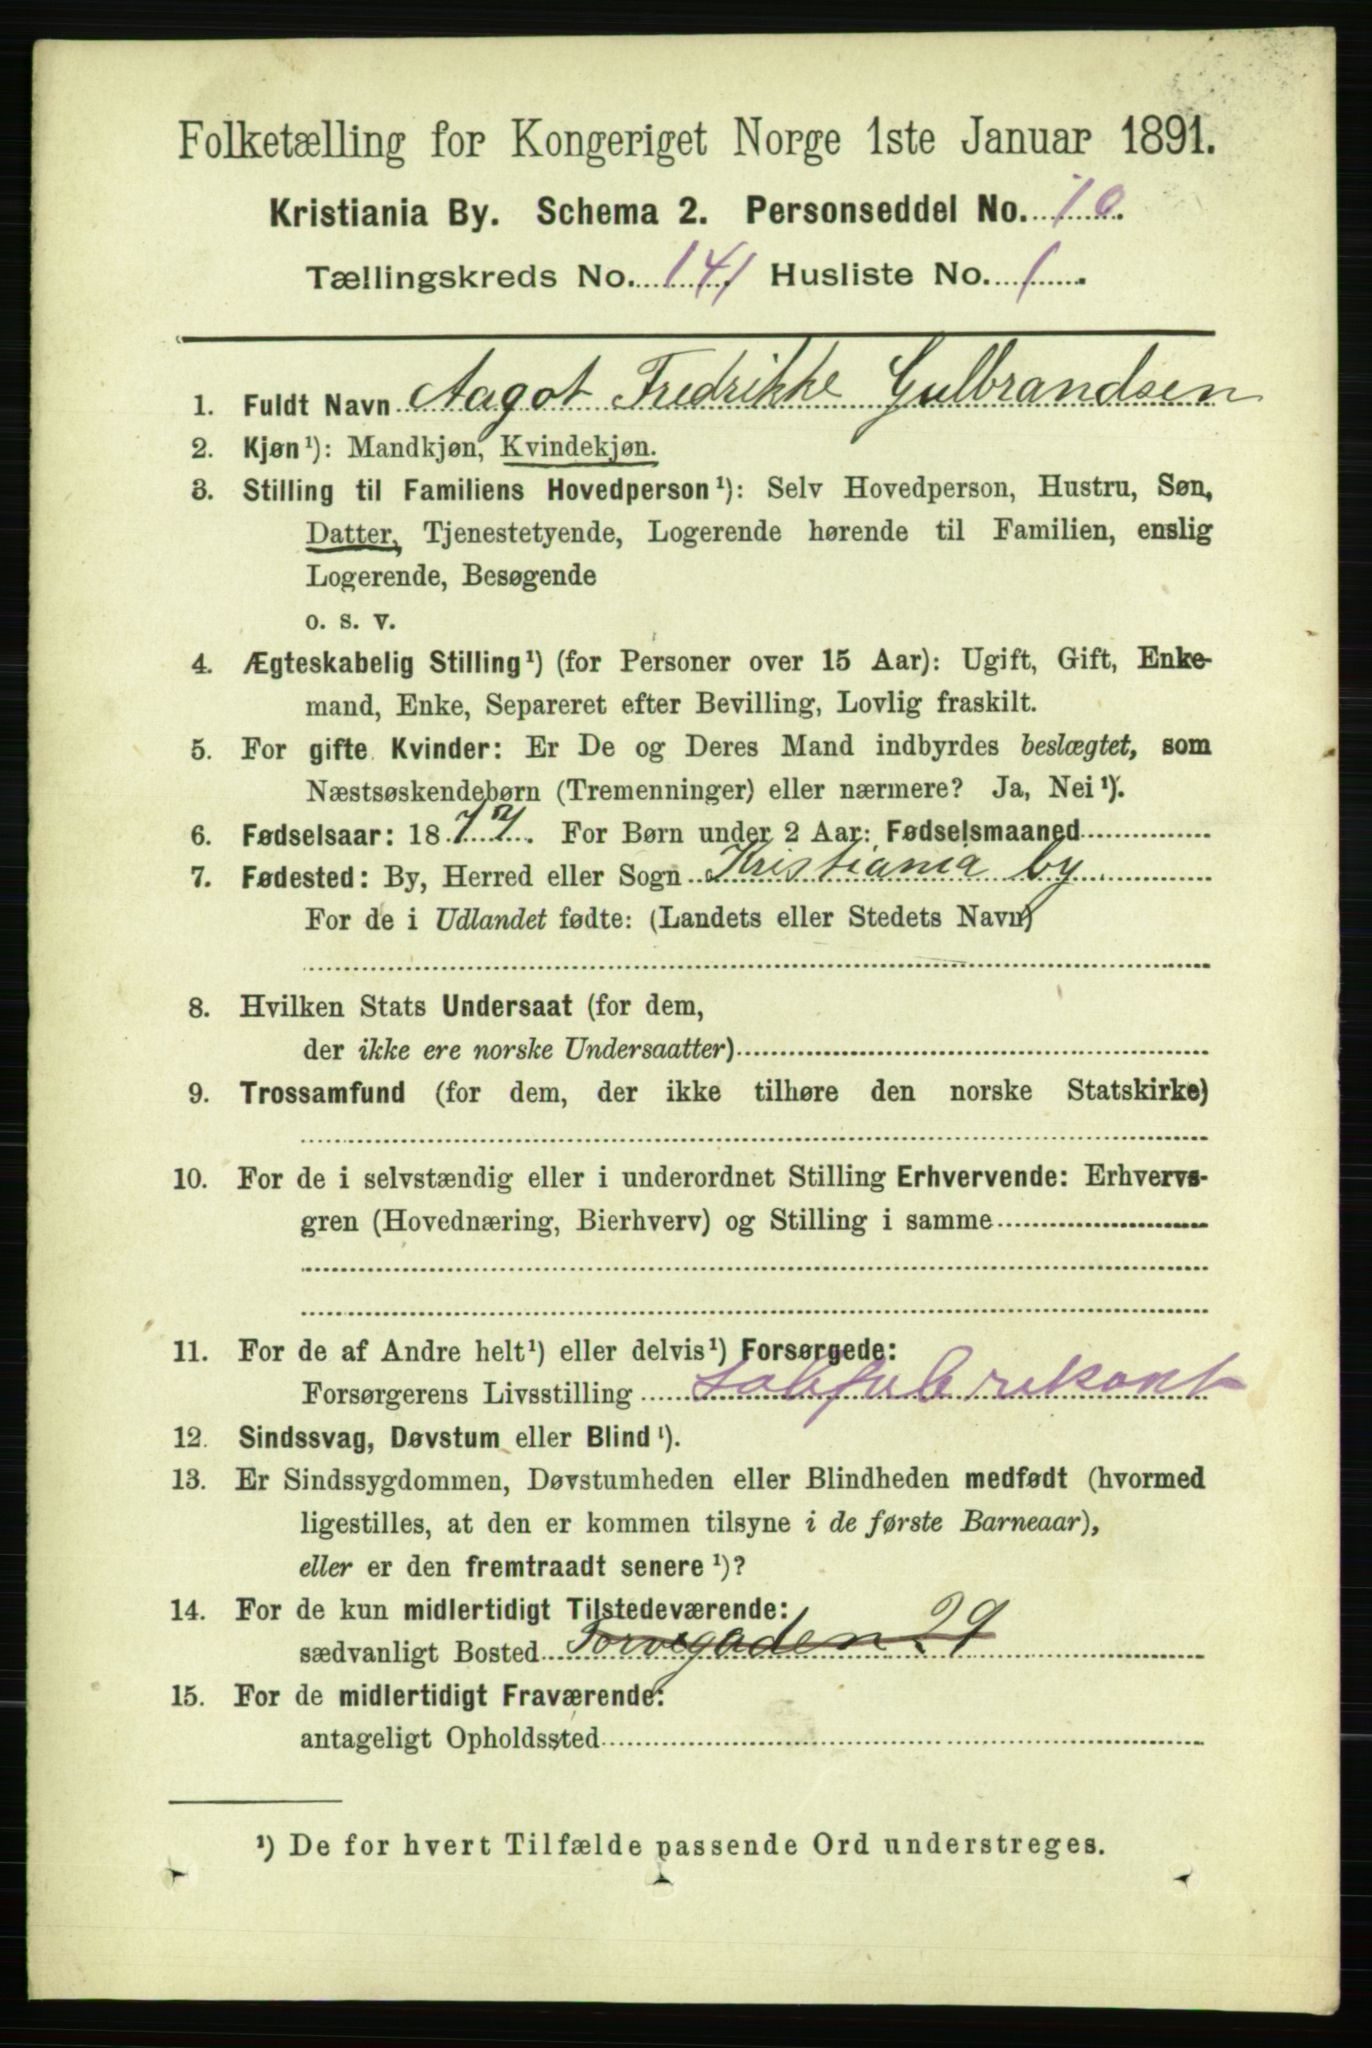 Folketælling for Kongeriget Norge 1ste Januar 1891.
Kristiania By. Schema 2. Personseddel No. 10.
Tællingskreds No. 141 Husliste No. 1.
1. Fuldt Navn Aagot Fredrikke Gulbrandsen
2. Kjøn¹): Mandkjøn, Kvindekjøn.
3. Stilling til Familiens Hovedperson¹): Selv Hovedperson, Hustru, Søn,
Datter, Tjenestetyende, Logerende hørende til Familien, enslig
Logerende, Besøgende
o. s. v.
4. Ægteskabelig Stilling¹) (for Personer over 15 Aar): Ugift, Gift, Enke-
mand, Enke, Separeret efter Bevilling, Lovlig fraskilt.
5. For gifte Kvinder: Er De og Deres Mand indbyrdes beslægtet, som
Næstsøskendebørn (Tremenninger) eller nærmere? Ja, Nei¹).
6. Fødselsaar: 18 For Børn under 2 Aar: Fødselsmaaned
7. Fødested: By, Herred eller Sogn Kristiania by
For de i Udlandet fødte: (Landets eller Stedets Navn)
8. Hvilken Stats Undersaat (for dem,
der ikke ere norske Undersaatter)
9. Trossamfund (for dem, der ikke tilhøre den norske Statskirke)
10. For de i selvstændig eller i underordnet Stilling Erhvervende: Erhvervs-
gren (Hovednæring, Bierhverv) og Stilling i samme
11. For de af Andre helt¹) eller delvis¹) Forsørgede:
Forsørgerens Livsstilling
12. Sindssvag, Døvstum eller Blind¹).
13. Er Sindssygdommen, Døvstumheden eller Blindheden medfødt (hvormed
ligestilles, at den er kommen tilsyne i de første Barneaar),
eller er den fremtraadt senere¹)?
14. For de kun midlertidigt Tilstedeværende:
sædvanligt Bosted Torvegaden 29
15. For de midlertidigt Fraværende:
antageligt Opholdssted
¹) De for hvert Tilfælde passende Ord understreges.